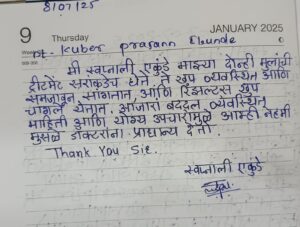 8/07/25
9 Thursday JANUARY 2025
pt- Kuber prasann Ekunde
मी स्वप्नाली एकुंडे माझ्या दोन्ही मुलांची
ट्रीटमेंट सरांकडेच घेते ते खुप व्यवस्थित आणि
समजावून सांगतात, आणि रिझल्टस खुप
चांगले येतात. आजारा बद्दल व्यवस्थित
माहिती आणि योग्य उपचारामुळे आम्ही नेहमी
मुसळे डॉक्टरांना प्राधान्य देतो.
Thank You Sir.
स्वप्नाली एकुंडे